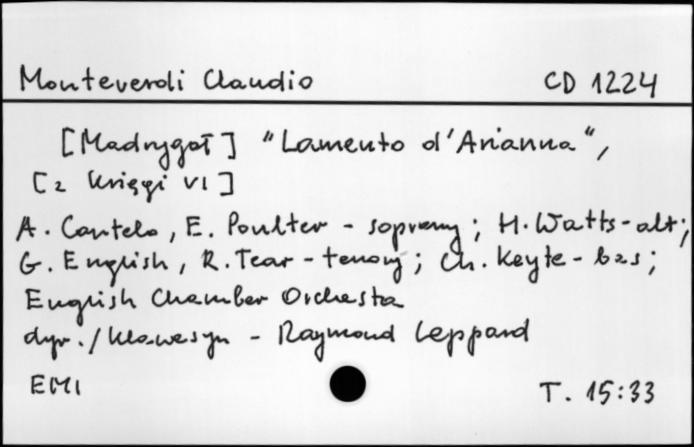 Monteverdi Claudio CD 1224
[Madrygał] "Lamento d'Arianna",
[z Księgi VI]
A. Cantelo, E. Poulter - soprany; H. Watts - alt;
G. English, R. Tear - tenory; Ch. Keyte - bas;
English Chamber Orchestra
dyr. / klawesyn - Raymond Leppard
EMI T. 15:33